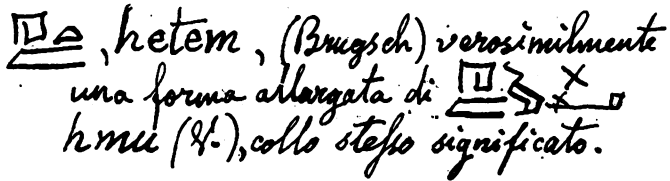 , hetem, (Brugsch) verosimilmente
una forma allargata di
hmu (V.), collo stesso significato.